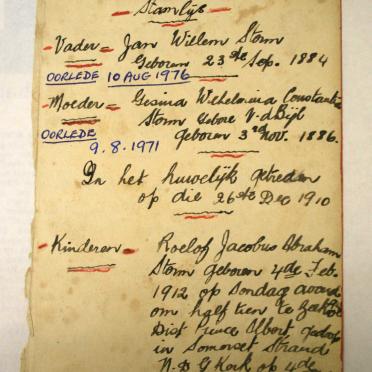 Stamlys
Vader = Jan Willem Storm
Geboren 23ste Sep. 1884
OORLEDE 10 AUG 1976
Moeder = Gesina Wilhelmina Constantia
Storm Gebore V.d Bijl
OORLEDE geboren 3de Nov. 1886.
9.8.1971
In het huwelijk getreden
op die 26ste Dec 1910
Kinderen = Roelof Jacobus Abraham
Storm geboren 4de Feb.
1912 op Sondag avond
om half tien te
Dist Prince Albert gedoop
in Somerset Strand
N.D G Kerk op 4de